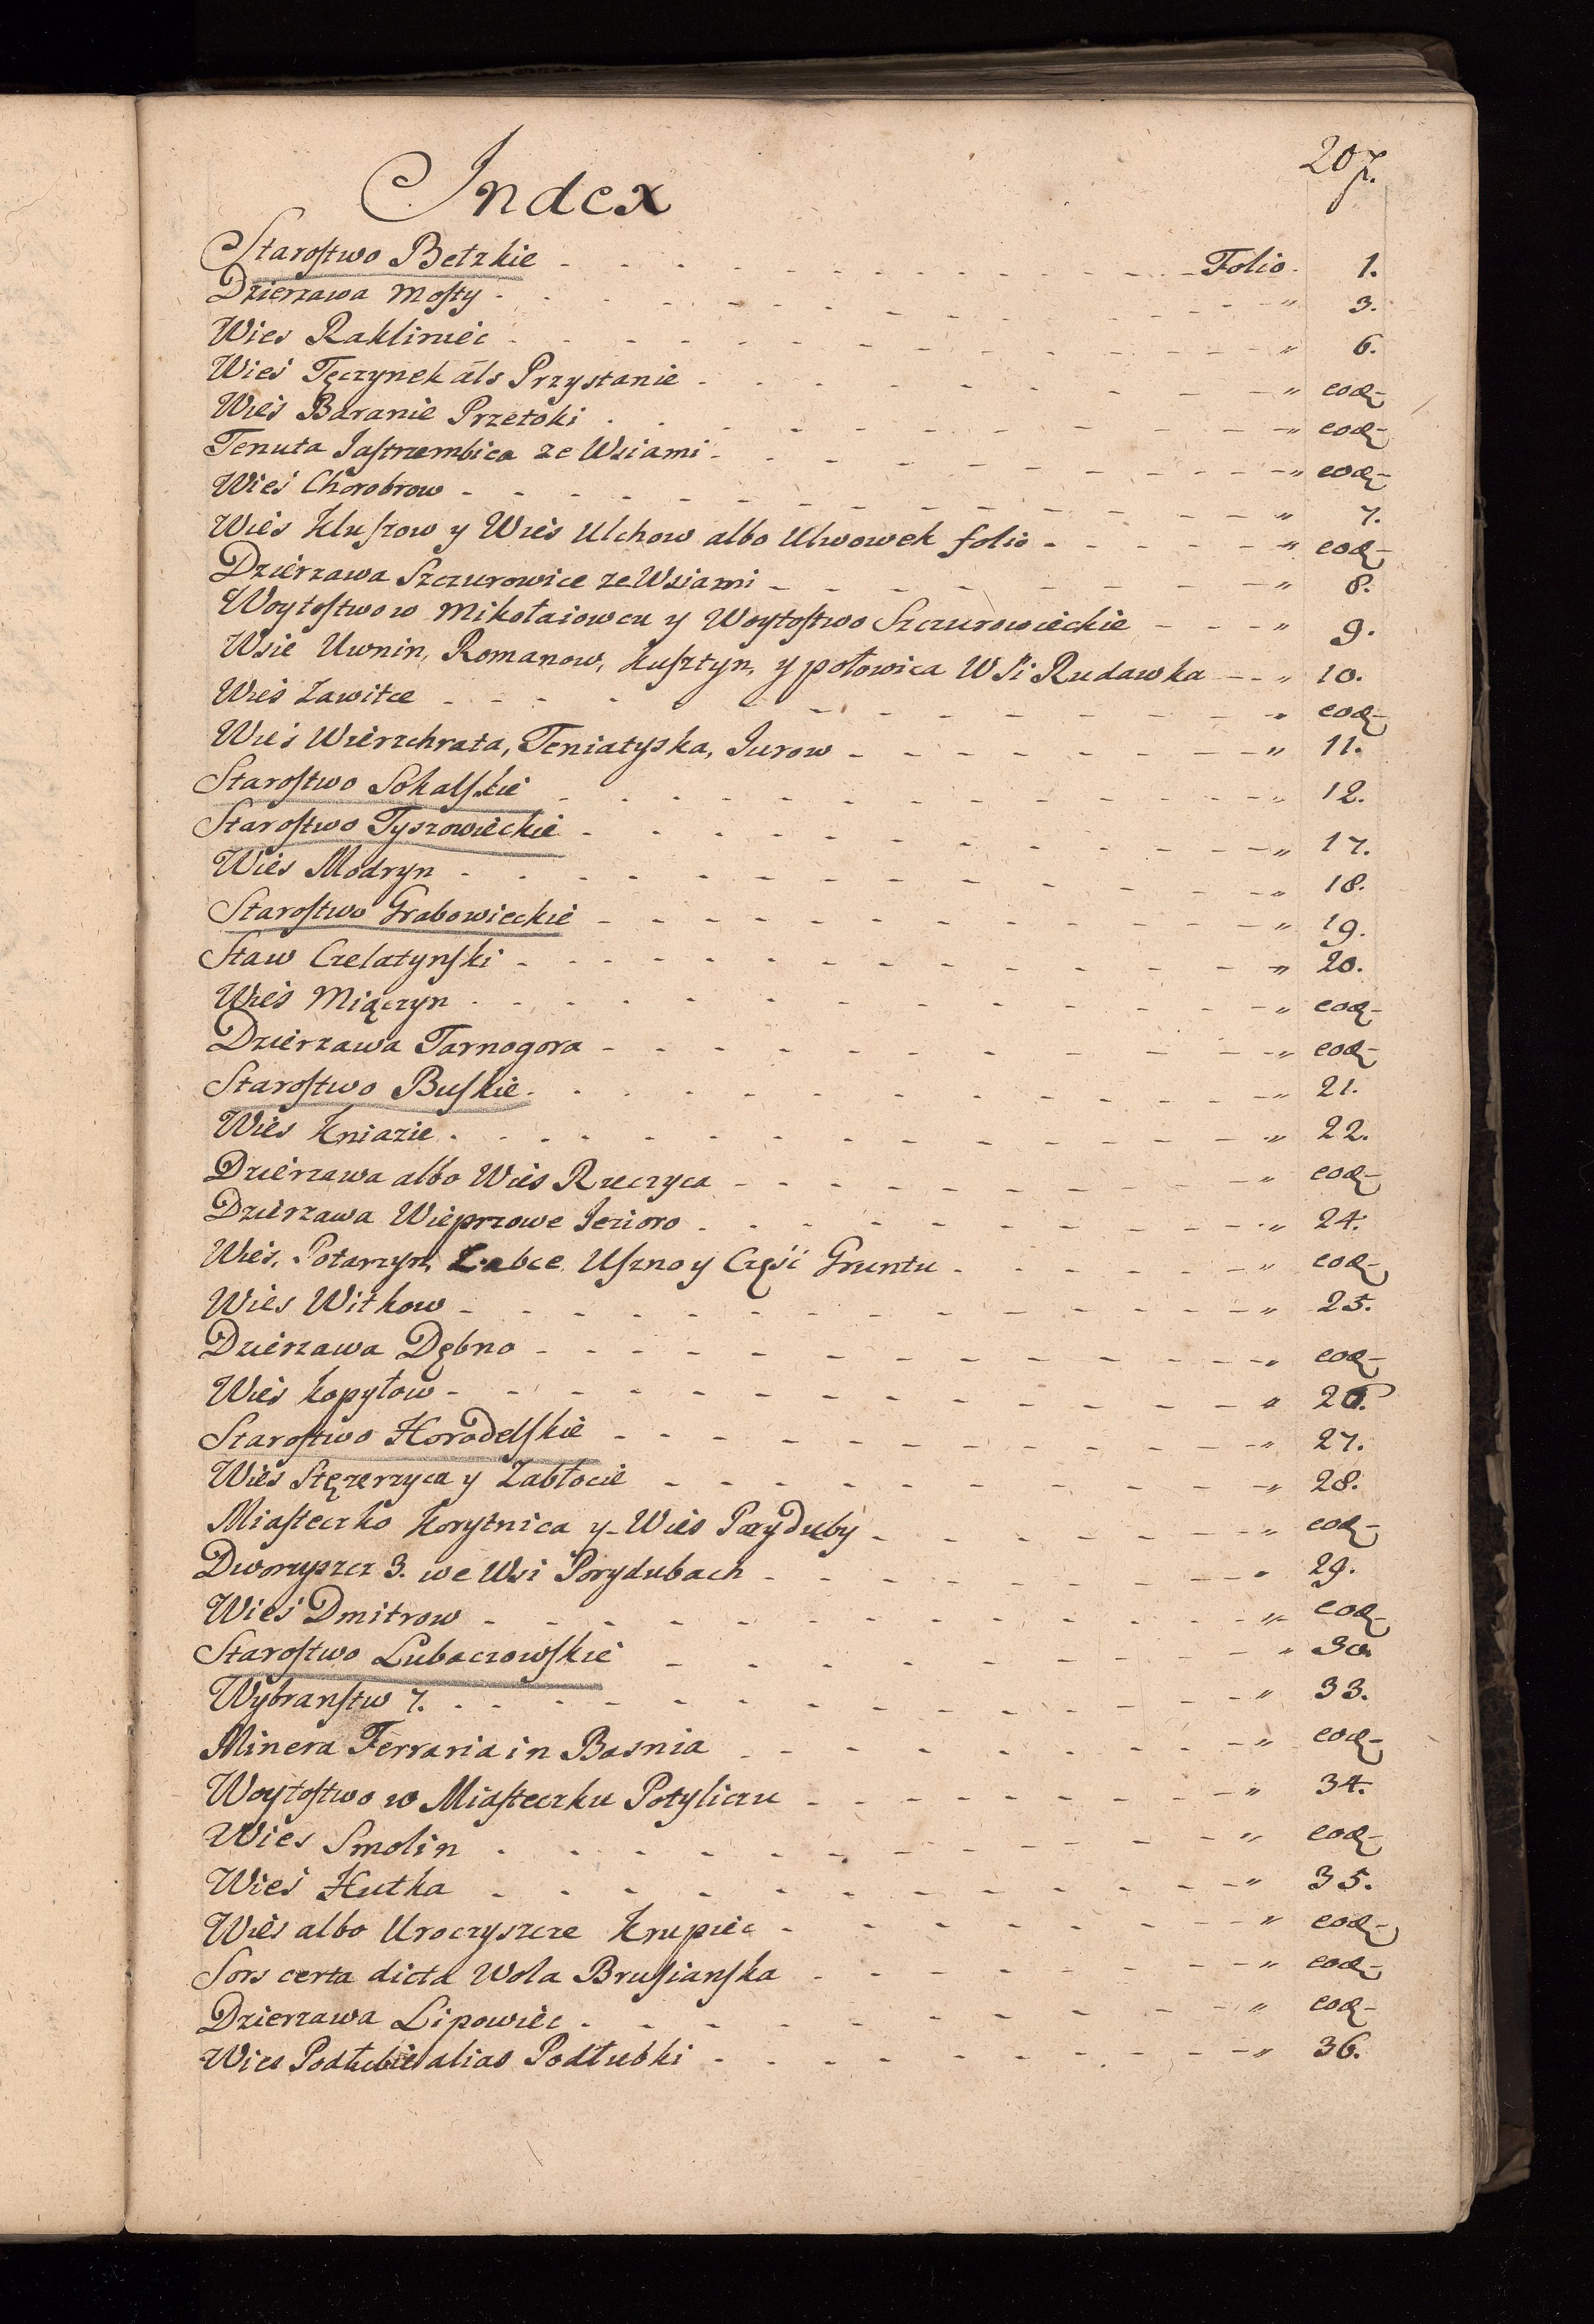 207.
Index
Starostwo Bełzkie - - - Folio. 1.
Dzierzawa Mosty - - - " 3.
Wies Rakliniec - - - " 6.
Wieś Tęczynek als Przystanie - - - " eod
Wieś Baranie Przetoki - - - " eod
Tenuta Jastrzembica ze Wsiami - - - " eod
Wieś Chorobrow - - - " 7.
Wieś Kluszow y Wieś Ulchow albo Ulwowek folio - - - " eod
Dzierzawa Szczurowice ze Wsiami - - - " 8.
Woytostwo w Mikołaiowcu y Woytostwo Szczurowieckie - - - " 9.
Wsie Uwnin, Romanow, Kusztyn, y połowica WSi Rudawka - - - " 10.
Wieś Zawitce - - - " eod
Wieś Wierzchrata, Teniatyska, Jurow - - - " 11.
Starostwo Sokalskie - - - " 12.
Starostwo Tyszowieckie - - - " 17.
Wieś Modryn - - - " 18.
Starostwo Grabowieckie - - - " 19.
Staw Czelatynski - - - " 20.
Wieś Miączyn - - - " eod
Dzierzawa Tarnogora - - - " eod
Starostwo Buskie - - - " 21.
Wieś Kniazie - - - " 22.
Dzierzawa albo Wieś Rzeczyca - - - " eod
Dzierzawa Wieprzowe Jezioro - - - " 24.
Wieś, Poturzyn, Łabce Uszno y Część Gruntu - - - " eod
Wieś Witkow - - - " 25.
Dzierzawa Dębno - - - " eod
Wieś Kopyłow - - - " 26.
Starostwo Horodelskie - - - " 27.
Wieś Stęzerzyca y Zabłocie - - - " 28.
Miasteczko Korytnica y Wieś Poryduby - - - " eod
Dworzyszcz 3. we Wsi Porydubach - - - " 29.
Wieś Dmitrow - - - " eod
Starostwo Lubaczowskie - - - " 30.
Wybranstw 7. - - - " 33.
Minera Ferraria in Basnia - - - " eod
Woytostwo w Miasteczku Potyliczu - - - " 34.
Wies Smolin - - - " eod
Wieś Hutka - - - " 35.
Wieś albo Uroczyszcze Krupiec - - - " eod
Sors certa dicta Wola Brusianska - - - " eod
Dzierzawa Lipowiec - - - " eod
Wies Podłubie alias Podłubki - - - " 36.